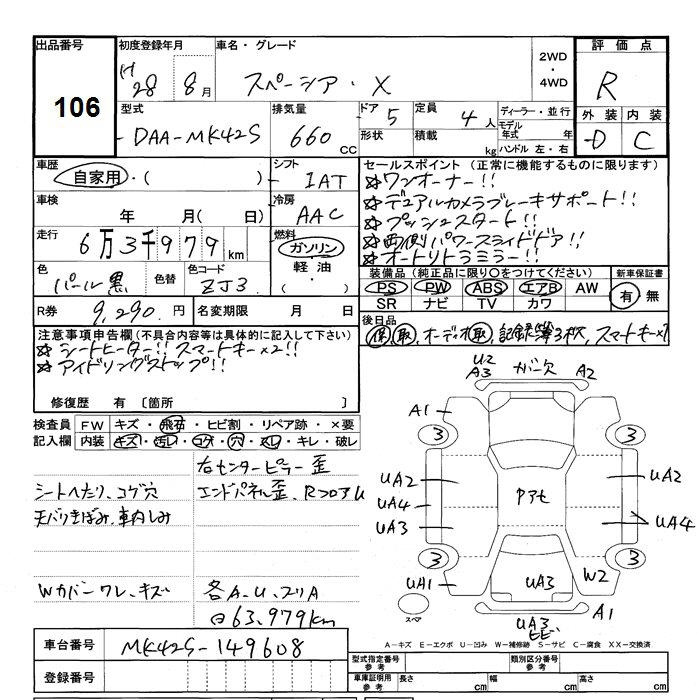 出品番号
106
初度登録年月
H28 8月
車名・グレード
スペーシア・X
2WD
・
4WD
評価点
R
外装 内装
D C
型式
DAA-MK42S
排気量
660 CC
ドア 5
形状
定員 4人
積載 kg
ディーラー・並行
モデル年式 年
ハンドル 左・右
車歴
自家用・( )
シフト
IAT
車検
年 月( 日)
冷房
AAC
走行
6万3千979km
燃料
ガソリン・
軽油・
( )
色
パール黒
色替
色コード
ZJ3
R券 9,290.円
名変期限 月 日
セールスポイント(正常に機能するものに限ります)
☆ワンオーナー!!
☆デュアルカメラブレーキサポート!!
☆プッシュスタート!!
☆両側パワースライドドア!!
☆オートリトラミラー!!
装備品(純正品に限り○をつけてください)
PS PW ABS エアB AW
SR ナビ TV カワ
新車保証書
有・無
後日品
保 取, オーディオ取, 記録簿3枚, スマートキー×1
注意事項申告欄(不具合内容等は具体的に記入して下さい)
☆シートヒーター!! スマートキー×2!!
☆アイドリングストップ!!
修復歴 有〔箇所 〕
検査員記入欄
FW キズ・飛石・ヒビ割・リペア跡・×要
内装 キズ・汚レ・コゲ・穴・スレ・キレ・破レ
右センターピラー歪
シートへたり、コゲ穴
エンドパネル歪、RフロアU
天バリきばみ、車内しみ
Wカバーワレ、キズ
各A.U.スリA
⊖63,979km
U2
A3 ガバ欠 A2
A1
3 3
UA2 UA2
Pアセ
UA4
UA3 UA4
3 3
UA1 UA3 W2
スペア
A1
UA3
EE
A-キズ E-エクボ U-凹み W-補修跡 S-サビ C-腐食 XX-交換済
車台番号 MK42S-149608
登録番号
型式指定番号 参考
類別区分番号 参考
車庫証明用 参考
長さ cm 幅 cm 高さ cm